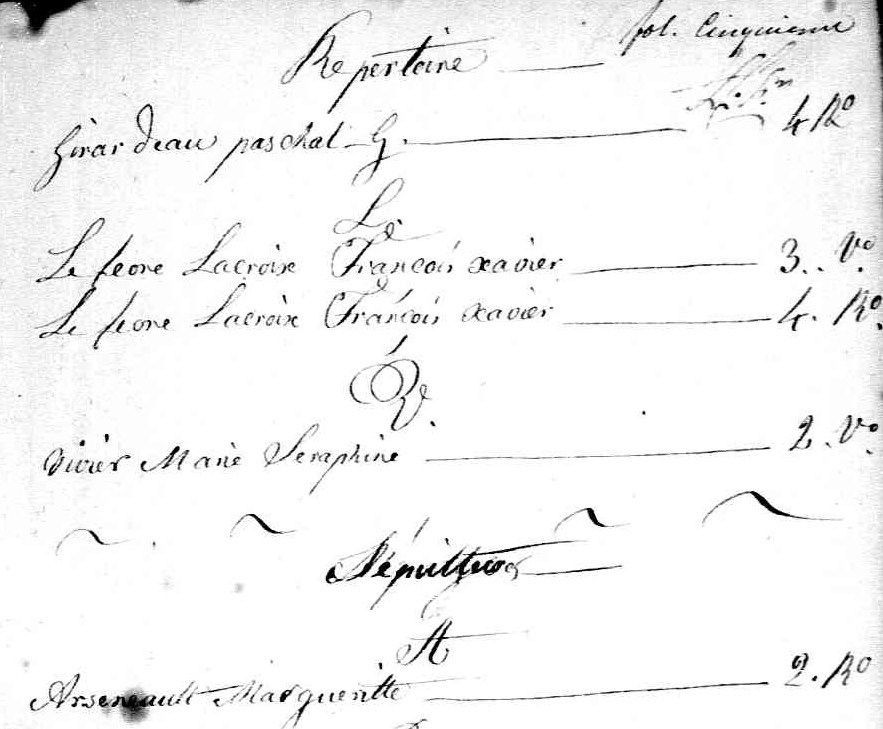 fol. Cinquieme
Repertoire
Girardeau paschal G. 4 Ro
L
Le feore Lacroix François xavier 3.. Vo.
Le feore Lacroix François xavier 4. Ro.
vivier Marie Seraphine 2. Vo.
Sépultures
A
Arseneault Margueritte 2. Ro